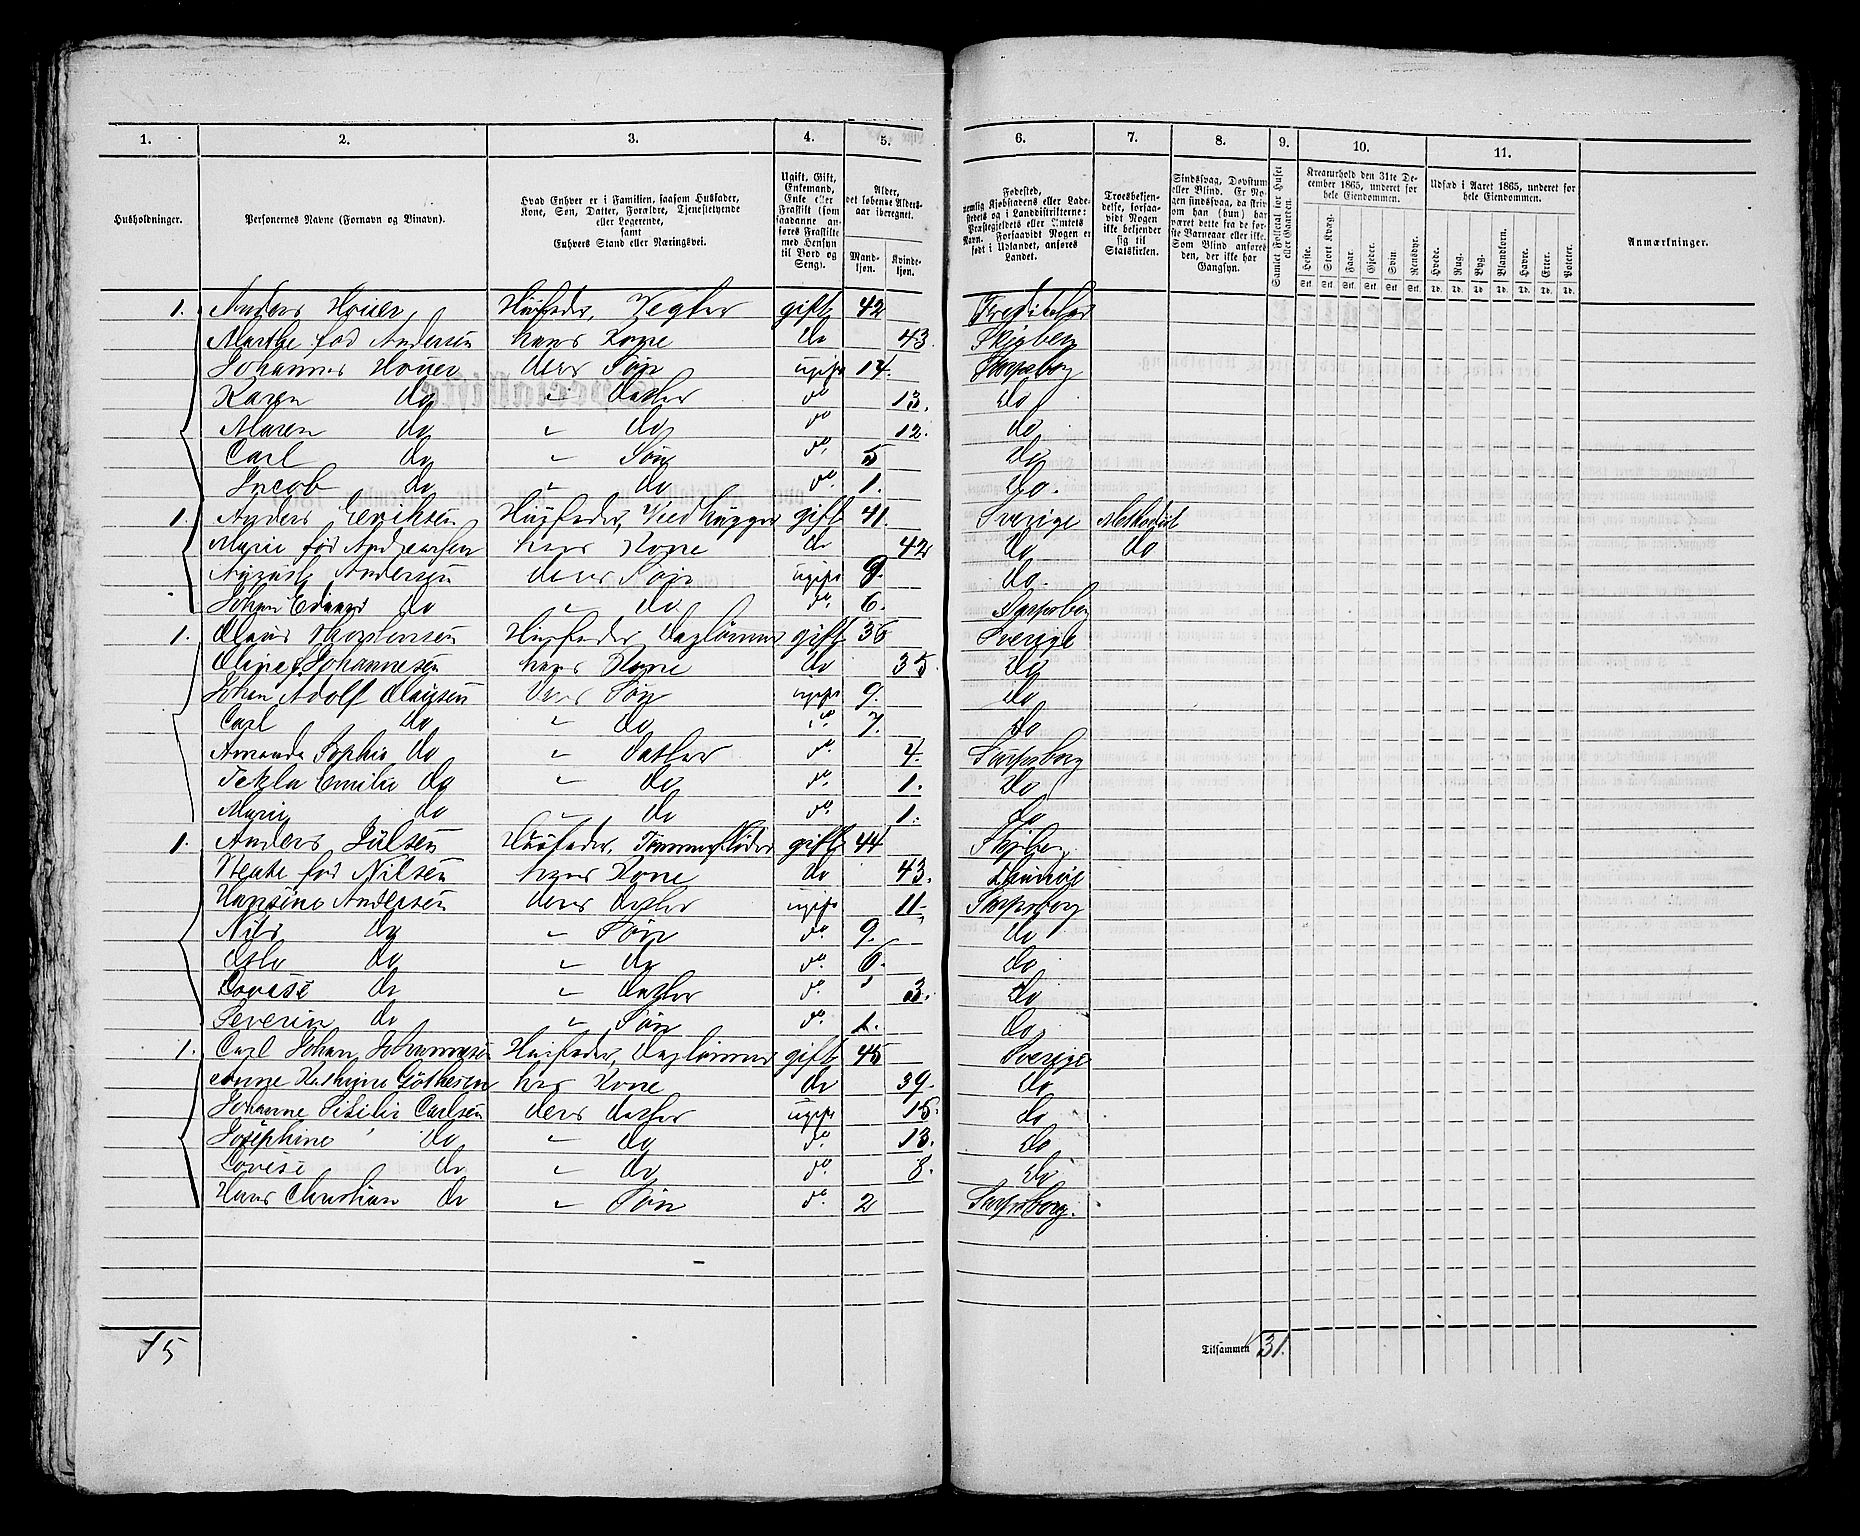 1. 2. 3. 4. 5. 6. 7. 8. 9. 10. 11.
Husholdninger.
Personernes Navne (Fornavn og Tilnavn).
Hvad Enhver er i Familien, saasom Husfader, Kone, Søn, Datter, Forældre, Tjenestetyende eller Logerende, samt Enhvers Stand eller Næringsvei.
Ugift, Gift, Enkemand, Enke eller Fraskilt (som saadanne anføres Fraskilte med Hensyn til Bord og Seng).
Alder, det løbende Alders-aar iberegnet.
Mand-kjøn. Kvinde-kjøn.
Fødested, nemlig Kjøbstadens eller Ladestedets og i Landdistrikterne: Præstegjeldets eller Amtets Navn. Forsaavidt Nogen er født i Udlandet, anføres Landet.
Troesbekjendelse, forsaavidt Nogen ikke bekjender sig til Statskirken.
Sindssvag, Døvstum eller Blind. Er Nogen sindssvag, da skrives om han (hun) har været dette fra de første Barneaar eller ikke. Som Blind anføres den, der ikke har Gangsyn.
Samlet Folketal for Huset eller Gaarden.
Kreaturhold den 31te December 1865, underet for hele Eiendommen.
Udsæd i Aaret 1865, underet for hele Eiendommen.
Anmærkninger.
Heste. Stort Kvæg. Faar. Gjeder. Svin. Rensdyr. Hvede. Rug. Byg. Blandkorn. Havre. Erter. Poteter.
Stk. Stk. Stk. Stk. Stk. Stk. Td. Td. Td. Td. Td. Td. Td.
1. Anders Høier Husfader, Vegter gift 42
Marthe fød Andersen hans Kone do 43. Skjeberg
Johannes Høier deres Søn ugift 14. Sarpsborg
Karen do " Datter do 13. do
Maren do " do do 12. do
Carl do " Søn do 5 do
Jacob do " do do 1. do.
1. Anders Eriksen Husfader, Vedhugger gift 41. Sverige Methodist
Marie fød Andreasen hans Kone do 42 do do
August Andersen deres Søn ugift 9. do.
Johan Edvard do " do do 6. Sarpsborg
1. Olaus Thorstensen Husfader, Daglønner gift 36 Sverige
Oline f. Johannesen hans Kone do 35. do
Johan Adolf Olausen deres Søn ugift 9. do
Carl do " do do 7. do
Amanda Sophie do " Datter do 4. Sarpsborg
Tekla Emilie do " do do 1. do
Marie do " do do 1. do
1. Anders Julsen Husfader, gift 44 Skjeberg
Beate fød Nilsen hans Kone do 43.
Hansine Andersen deres Datter ugift 11. Sarpsborg
Nils do " Søn do 9. do
Oslo do " do do 6. do
Lovise do " Datter do 3. do
Severin do " Søn do 1. do.
1. Carl Johan Johannesen Husfader, Daglønner gift 45 Sverige
Anne Kathrine hans Kone do 39. do
Johanne Sesilie Carlsen deres Datter ugift 15. do
Josephine do " do do 13. do
Lovise do " do do 8. do
Hans Christian do " Søn do 2 Sarpsborg.
15
Tilsammen 31.